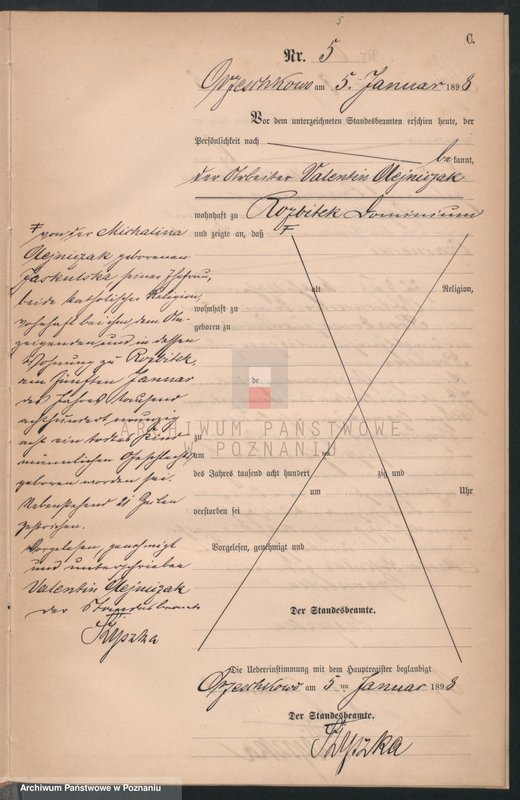 5
C.
Nr. 5
Orzeschkowo am 5. Januar 1898
Vor dem unterzeichneten Standesbeamten erschien heute, der
Persönlichkeit nach
bekannt,
der Arbeiter Valentin Olejniczak
wohnhaft zu Rozbitek Dominium
und zeigte an, daß
von der Michalina
Olejniczak geborenen
Jaskulska seiner Ehefrau,
beide katholischer Religion,
wohnhaft bei ihm dem An-
zeigenden und in dessen
Wohnung zu Rozbitek,
am fünften Januar
des Jahres tausend
achthundert neunzig
acht ein todtes Kind
männlichen Geschlechts
geboren worden sei.
Nebenstehend 21 Zeilen
gestrichen.
Vorgelesen, genehmigt
und unterschrieben
Valentin Olejniczak
der Standesbeamte
alt Religion,
wohnhaft zu
geboren zu
de
zu
am
des Jahres tausend acht hundert zig und
um Uhr
verstorben sei
Vorgelesen, genehmigt und
Der Standesbeamte.
Die Uebereinstimmung mit dem Hauptregister beglaubigt
Orzeschkowo am 5 ten Januar 1898
Der Standesbeamte.
ARCHIWUM PAŃSTWOWE
W POZNANIU
Archiwum Państwowe w Poznaniu